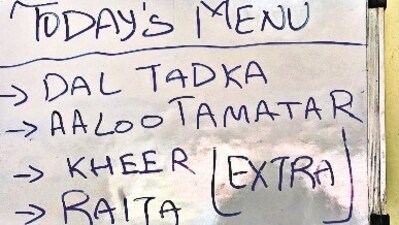 TODAY's MENU
→ DAL TADKA
→ AALOO TAMATAR
→ KHEER [EXTRA]
→ RAITA